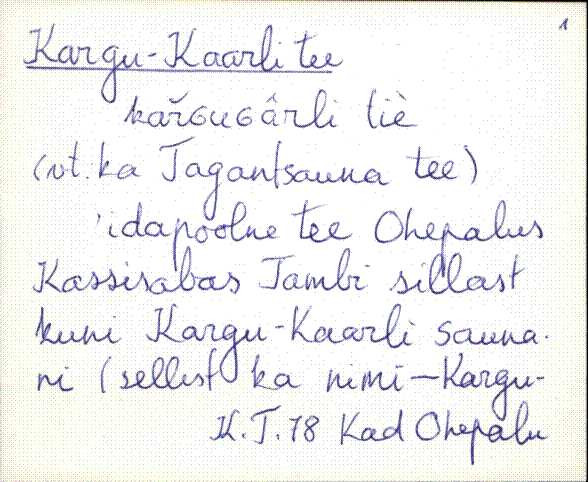 1
Kargu-Kaarli tee
kař̆ɢuɢârli tìè
(vt. ka Tagantsauna tee)
'idapoolne tee Ohepalus
Kassisabas Tambi sillast
kuni Kargu-Kaarli sauna-
ni (sellest ka nimi—Kargu-
K.T. 78 Kad Ohepalu